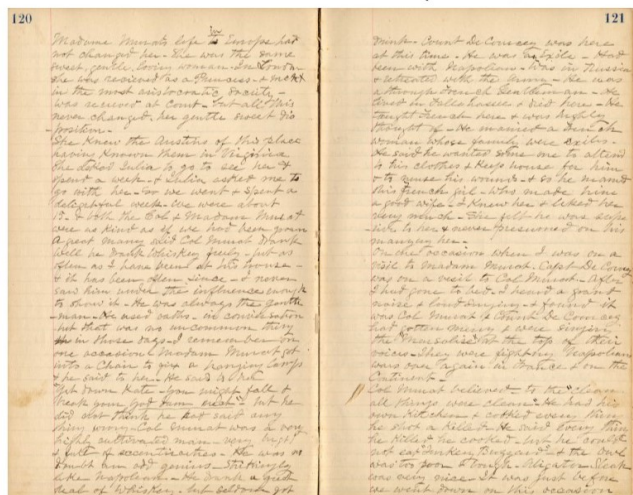 120
Madame Murats life in Europe had
not changed her - She was the same
sweet gentle loving woman - In London
she was received as a Princess -
in the most aristocratic Society -
was received at Court - but all this
never changed her gentle sweet dis
position -
She knew the Austins of this place
having known them in Virginia
She asked Julia to go to see her &
spend a week - & Julia asked me to
go with her - So we went & spent a
delightful week - We were about
17 - & both the Col & Madam Murat
were as kind as if we had been grown
A great many said Col Murat drank
Well he drank Whiskey freely - but as
often as I have been at his house -
& it has been often since - I never
saw him under the influence enough
to show it - He was always the gentle
-man - He used oaths - in conversation
but that was no uncommon thing
in those days - I remember on
one occasion Madam Murat got
into a Chair to fix a hanging lamp
& he said to her
get down Kate - You might fall &
break your God damn neck - but he
did not think he had said any
thing wrong - Col Murat was a very
highly cultivated man - very
& full of eccentricities - He was no
doubt an odd genius - Strikingly
like Napoleon - He drank a great
deal of Whiskey - but seldom got
121
drunk - Count De Coumcy was here
at this time - He was an exile - Had
been with Napoleon - Was in Russia
& retreated with the Army - He was
a thorough French Gentleman - He
lived in Tallahassee & died here - He
taught French here & was highly
thought of - He married a French
woman whose family were exiles -
He said he wanted some one to attend
to his clothes & keep house for him
& to nurse his wounds - & so he married
this french girl - who made him
a good wife - I knew her & liked her
very much - She felt he was supe
rior to her & never presumed on his
marrying her -
On one occasion when I was on a
visit to Madam Murat. Capt De Coumcy
was on a visit to Col Murat - After
I had gone to bed - I heard a great
noise & loud singing - & found it
was Col Murat & Count De Coumcy
had gotten merry & were singing
the Marsalise at the top of their
voices - They were fighting Napoleons
wars over again in France & on the
Continent -
Col Murat believed - to the clean
all things were clean - He had his
own Kitchen & cooked every thing
he shot & killed - He said every thing
he killed he cooked - but he could
not eat Turkey Buzzard - & the Owl
was too tough - Aligator Steak
was very nice - It was just before
we went down on this occasion